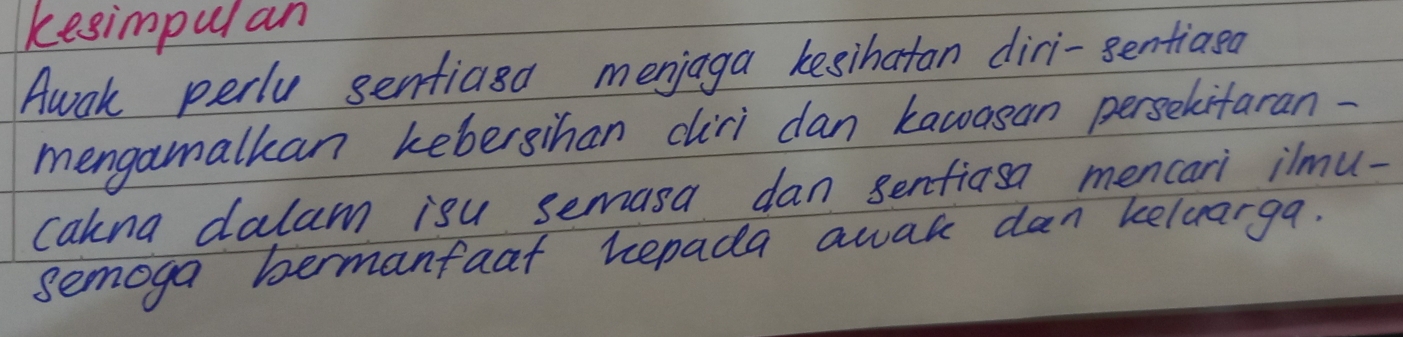 Kesimpulan
Awak perlu sentiasa menjaga kesihatan diri- sentiasa
mengamalkan kebersihan diri dan kawasan persekitaran -
cakna dalam isu semasa dan sentiasa mencari ilmu-
semoga bermanfaat kepada awak dan keluarga.